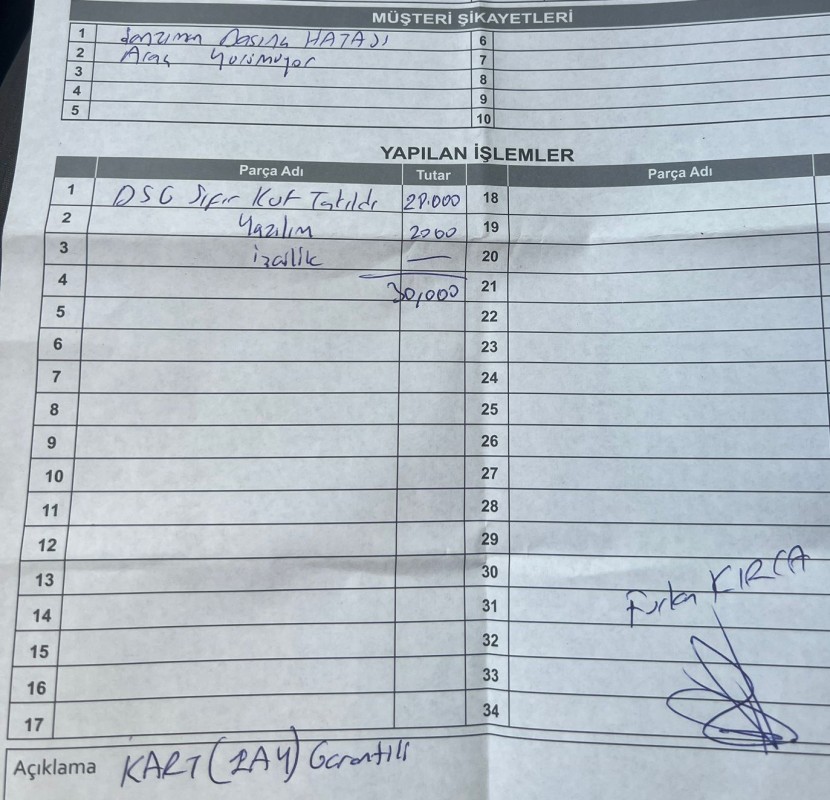 MÜŞTERİ ŞİKAYETLERİ
1 Şanzıman Basınç HATASI 6
2 Araç Yürümüyor 7
3 8
4 9
5 10
YAPILAN İŞLEMLER
Parça Adı Tutar Parça Adı
1 DSG Sıfır Kut Takıldı 28.000 18
2 Yazılım 2000 19
3 işçilik — 20
4 30,000 21
5 22
6 23
7 24
8 25
9 26
10 27
11 28
12 29
13 30
14 31
15 32
16 33
17 34
KIRCA
Açıklama KART (2AY) Garantili